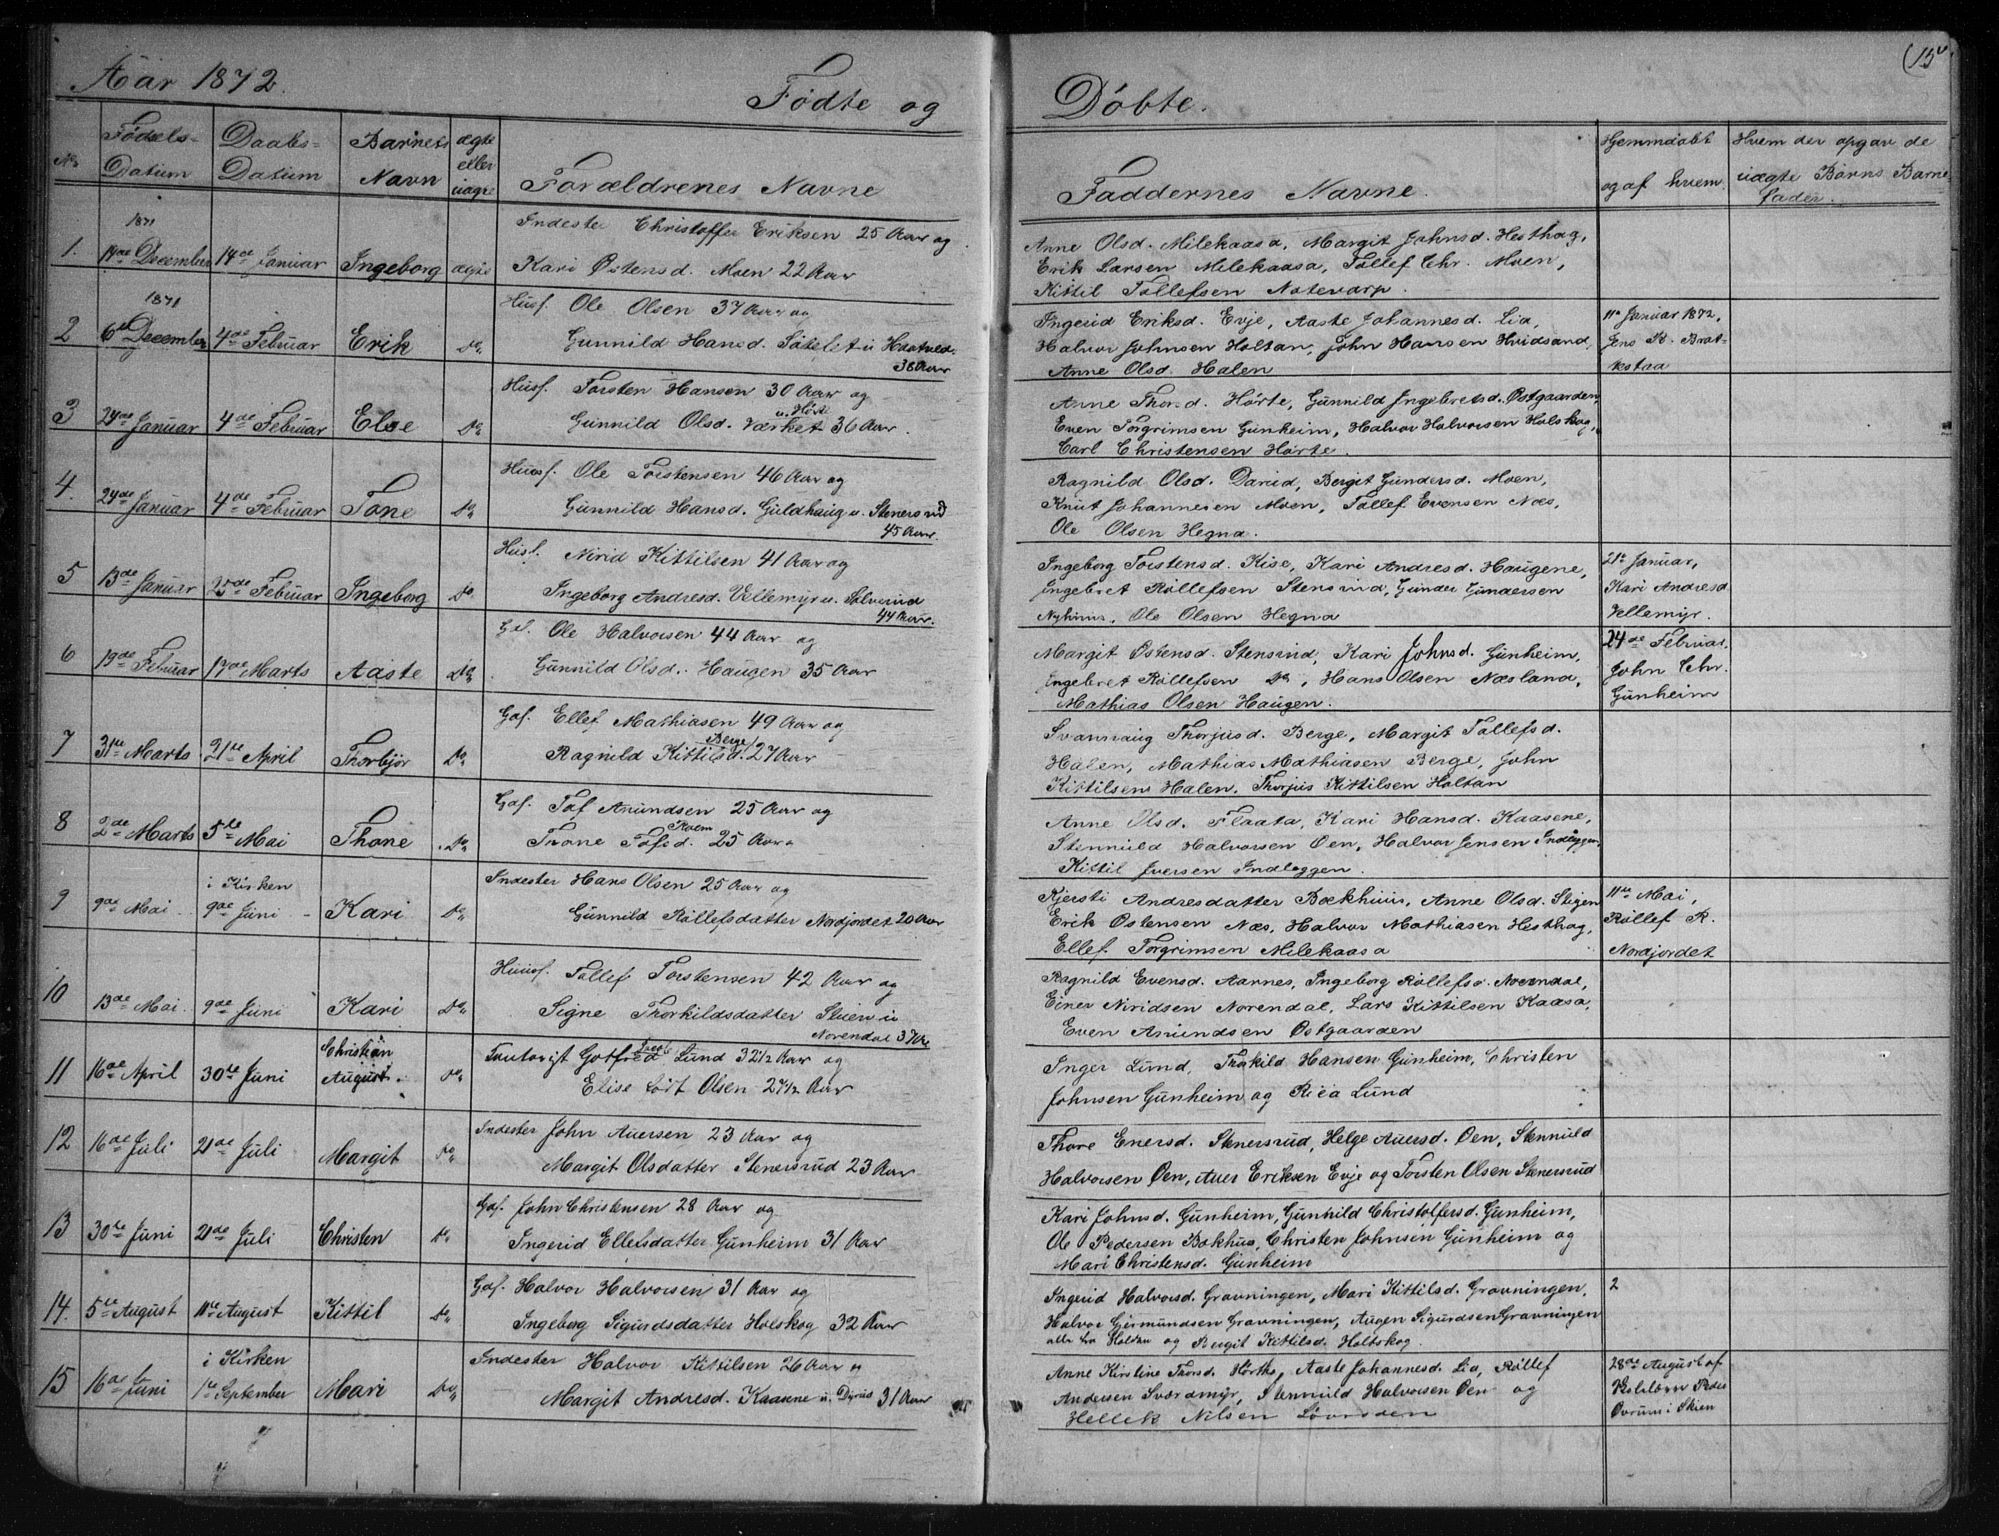 Aar 1872.
Fødte og
Døbte.
(15
No
Fødsels-
Datum
Daabs-
Datum
Barnets
Navn
ægte
eller
uægte
Forældrenes Navne
Faddernes Navne.
Hjemmdøbt
og af hvem.
Hvem der opgav de
uægte Børns Barne-
fader.
1. 1871 14de December 14de Januar Ingeborg ægte
Indester Christoffer Eriksen 25 Aar og
Kari Østensd. Moen 22 Aar
Anne Olsd. Milekaasa, Margit Johnsd. Hesthag,
Erik Larsen Milekaasa, Tollef Chr. Moen,
Kittil Tollefsen Notevarp.
2 1871 6te December 4de Februar Erik Do
Husf. Ole Olsen 37 Aar og
Gunnild Hansd. Sätelet u Haatved.
38 Aar
Ingerid Eriksd. Evje, Aaste Johannesd. Lia,
Halvor Johnsen Holtan, John Hansen Hvidsand,
Anne Olsd. Halen
11te Januar 1872,
Jens R. Brat-
kstaa
3 24de Januar 4de Februar Else Do
Husf. Torsten Hansen 30 Aar og
Gunnild Olsd. Værket u. Hørte 36 Aar.
Anne Thorsd. Hørte, Gunnild Ingebretsd. Østgaarden,
Even Torgrimsen Gunheim, Halvor Halvorsen Holskog,
Carl Christensen Hørte.
4. 24de Januar 4de Februar Tone Do
Huusf. Ole Torstensen 46 Aar og
Gunnild Hansd. Guldhaug u. Stenersrud
45 Aar.
Ragnild Olsd. Darud, Bergit Gundersd. Moen,
Knut Johannesen Moen, Tollef Evensen Næs,
Ole Olsen Hegna.
5 13de Januar 25de Februar Ingeborg Do.
Husf. Nirid Kittilsen 41 Aar og
Ingeborg Andresd. Vellemyr u. Sølverud
44 Aar.
Ingeborg Torstensd. Kise, Kari Andresd. Haugene,
Ingebret Røllefsen Stensrud, Gunder Gundersen
Nyhuus, Ole Olsen Hegna
21de Januar,
Kari Andresd
Vellemyr.
6 19de Februar 17de Marts Aaste Do.
Gaf. Ole Halvorsen 44 Aar og
Gunnild Olsd. Haugen 35 Aar
Margit Østensd. Stensrud, Kari Johnsd. Gunheim,
Ingebret Røllefsen Do, Hans Olsen Næsland,
Mathias Olsen Haugen.
24de Februar,
John Chr.
Gunheim
7 31te Marts 21te April Thorbjør Do
Gaf. Ellef Mathiasen 49 Aar og
Ragnild Kittilsd. Berge 27 Aar
Svannaug Thorjusd. Berge, Margit Tollefsd.
Halen, Mathias Mathiasen Berge, John
Kittilsen Halen, Thorjus Kittilsen Holtan
8 2de Marts 5te Mai Thone Do
Gaf. Tof Amundsen 25 Aar og
Trone Tofsd. Roem 25 Aar
Anne Olsd. Flaata, Kari Hansd. Kaasene,
Stennuld Halvorsen Øen, Halvor Jensen Indlæggen,
Kittil Iversen Indlæggen.
9 9de Mai i Kirken 9de Juni Kari Do
Indester Hans Olsen 25 Aar og
Gunnild Røllefsdatter Nordjordet 20 Aar
Kjersti Andresdatter Bækhuus, Anne Olsd. Stigen
Erik Østensen Næs, Halvor Mathiasen Hesthag,
Ellef Torgrimsen Milekaasa
11te Mai,
Røllef R.
Nordjordet
10 13de Mai 9de Juni Kari Do
Huusf. Tollef Torstensen 42 Aar og
Signe Thorkildsdatter Skier u
Norendal 37 Aar
Ragnild Evensd. Aarnes, Ingeborg Røllefsd. Norendal,
Einer Niridsen Norendal, Lars Kittilsen Kaasa,
Even Amundsen Østgaarden
11 16de April 30te Juni Christian
August. Do
Gotfred Lund 32 1/2 Aar og
Elise født Olsen 27 1/2 Aar
Inger Lund, Thorkild Hansen Gunheim, Christen
Johnsen Gunheim og Rica Lund
12 16de Juli 21de Juli Margit Do
Indester John Auersen 23 Aar og
Margit Olsdatter Stenersrud 23 Aar
Thore Enersd. Stenersrud, Helge Auersd. Øen, Stennuld
Halvorsen Øen, Auer Eriksen Evje og Torsten Olsen Stenersrud
13 30te Juni 21de Juli Christen Do
Gaf. John Christensen 28 Aar og
Ingerid Ellefsdatter Gunheim 31 Aar
Kari Johnsd. Gunheim, Gunhild Christoffersd. Gunheim,
Ole Pedersen Bakhus, Christen Johnsen Gunheim og
Mari Christensd. Gunheim
14. 5te August 11te August Kittil Do
Gaf. Halvor Halvorsen 31 Aar og
Ingeborg Sigurdsdatter Holskog 32 Aar
Ingerid Halvorsd. Gravningen, Mari Kittilsd. Gravningen,
Halvor Germundsen Gravningen, Augen Sigurdsen Gravningen
alle fra Holden og Bergit Kittilsd. Holtskog.
2
15 16de Juni i Kirken 1te September Mari Do
Indester Halvor Kittilsen 26 Aar og
Margit Andresd. Kaasene u. Dyrud 31 Aar
Anne Kirstine Thorsd. Hörthe, Aaste Johannesd. Lia, Røllef
Andersen Sværdmyr, Stennuld Halvorsen Øen og
Hellek Nilsen
28de August af
i Skien